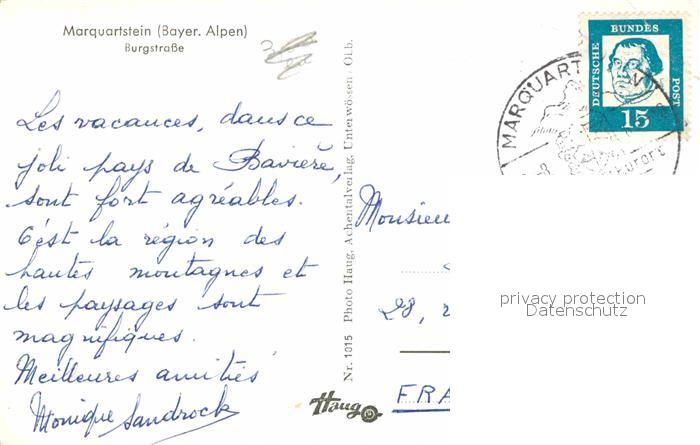 Marquartstein (Bayer. Alpen)
Burgstraße
Les vacances, dans ce
joli pays de Bavière,
sont fort agréables.
C'est la région des
hautes montagnes et
les paysages sont
magnifiques.
Meilleures amitiés
Monique Sandrock
Nr. 1015 Photo Haug, Achentalverlag, Unterwössen - Obb.
Haug
DEUTSCHE
BUNDES
POST
15
MARQUART
Monsieu
28,
FRA
privacy protection
Datenschutz